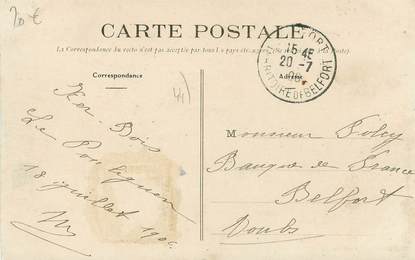 20 €
CARTE POSTALE
La Correspondance du recto n'est pas acceptée par tous les pays étrangers
Correspondance
Adresse
BELFORT
15-45
20-7
06
TERRITOIRE DE BELFORT
41
Ker-Bois
Le Pouliguen
18 juillet 1906
Monsieur
Banque de France
Belfort
Doubs